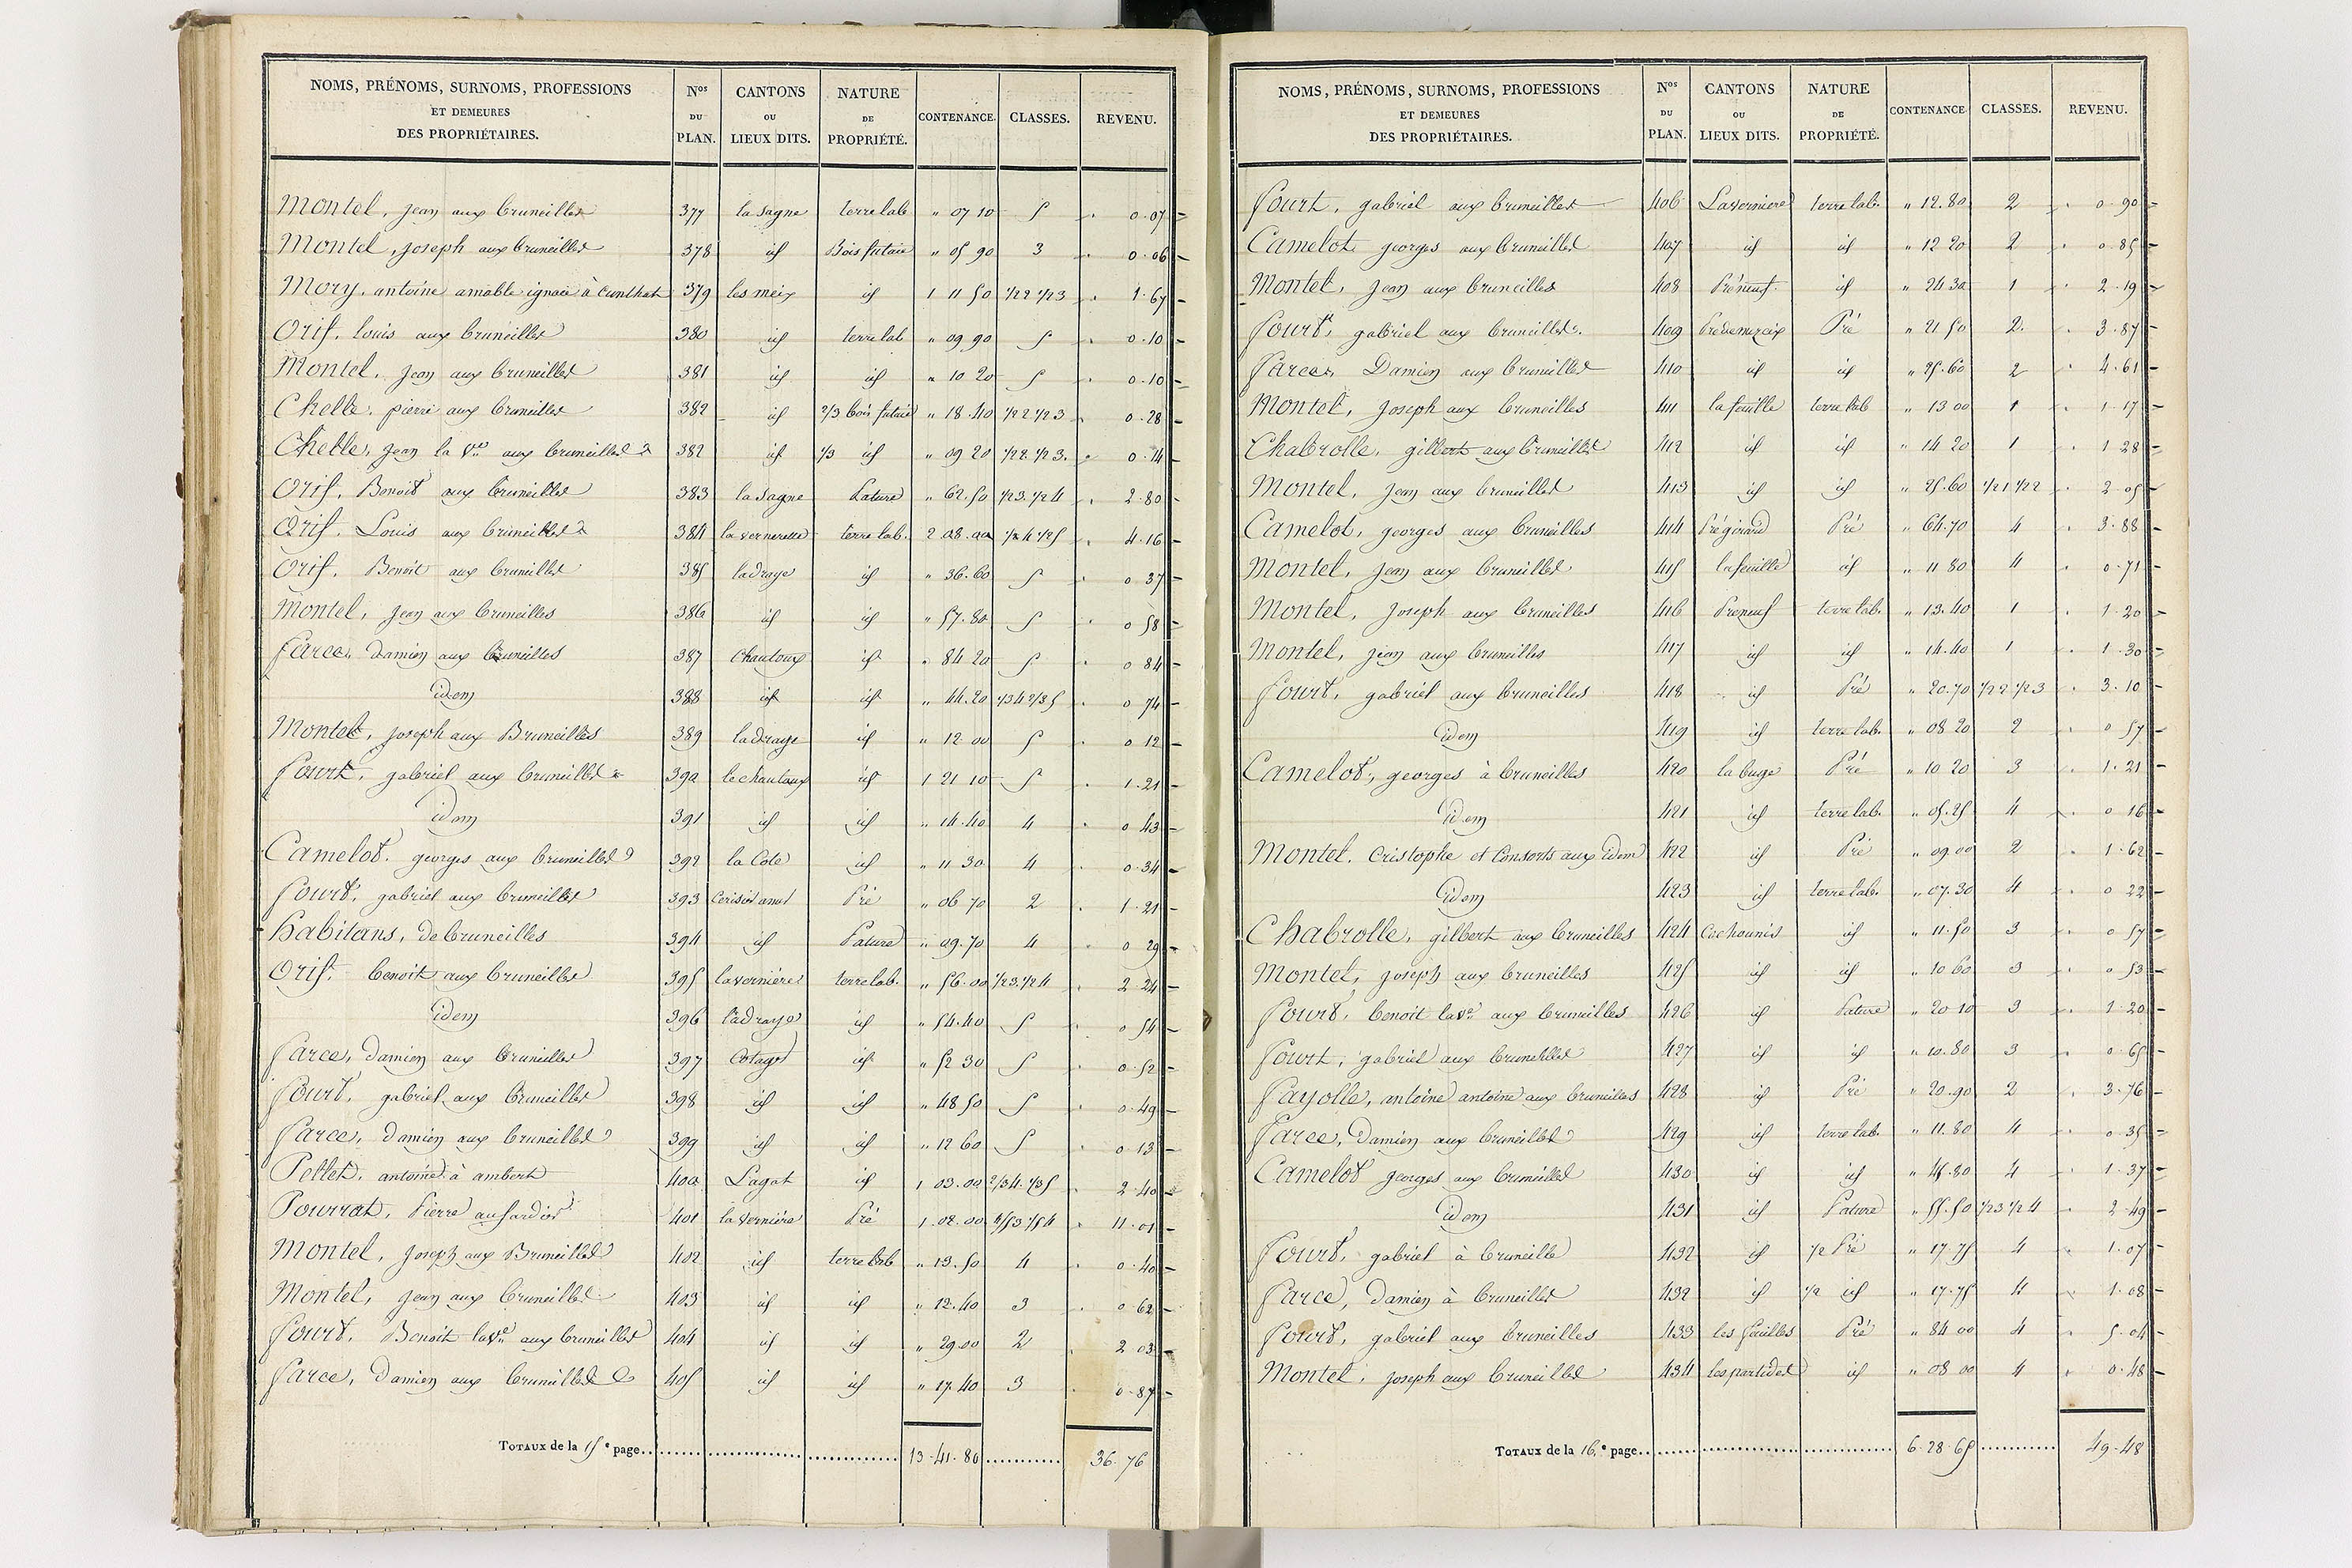 NOMS, PRÉNOMS, SURNOMS, PROFESSIONS ET DEMEURES DES PROPRIÉTAIRES. Nos DU PLAN. CANTONS OU LIEUX DITS. NATURE DE PROPRIÉTÉ. CONTENANCE. CLASSES. REVENU.
Montel, Jean aux bruneilles 377 la sagne terre lab " 07 10 5 " 0.07
Montel, joseph aux bruneilles 378 id Bois futaie " 05 90 3 " 0.06
Mory, antoine amable ignace à Cunlhat 379 les meix id 1 11 50 1/2 2 1/2 3 " 1.67
Orif, louis aux bruneilles 380 id terre lab " 09 90 5 " 0.10
Montel, Jean aux bruneilles 381 id id " 10 20 5 " 0.10
Chelle, pierre aux bruneilles 382 id 2/3 bois futaie " 18.40 1/2 2 1/2 3 " 0.28
Chelle, Jean la Ve aux bruneilles 382 id 1/3 id " 09 20 1/2 2. 1/2 3. " 0.14
Orif, Benoit aux bruneilles 383 la sagne Pature " 62.50 1/2 3. 1/2 4 " 2.80
Orif, Louis aux bruneilles 384 la vernerette terre lab. 2 08.00 1/2 4 1/2 5 " 4.16
Orif, Benoit aux bruneilles 385 ladraye id " 36.60 5 " 0 37
Montel, Jean aux bruneilles 386 id id " 57.80 5 " 0 58
farce, Damien aux bruneilles 387 Chautoux id " 84 20 5 " 0 84
idem 388 id id " 44.20 1/3 4 2/3 5 " 0 74
Montel, joseph aux Bruneilles 389 ladraye id " 12 00 5 " 0 12
fourt, gabriel aux bruneilles 390 le chautoux id 1 21 10 5 " 1.21
idem 391 id id " 14.40 4 " 0 43
Camelot, georges aux bruneilles 392 la Cote id " 11 30 4 " 0.34
fourt, gabriel aux bruneilles 393 Pré " 06 70 2 " 1.21
habitans, de bruneilles 394 id Pature " 09.70 4 " 0 29
Orif, benoit aux bruneilles 395 laverniere terre lab. " 56.00 1/2 3. 1/2 4 " 2 24
idem 396 l'adraye id " 54.40 5 " 0 54
farce, damien aux bruneilles 397 Cotages id " 52 30 5 " 0.52
fourt, gabriel aux bruneilles 398 id id " 48.50 5 " 0.49
farce, Damien aux bruneilles 399 id id " 12 60 5 " 0 13
Pellet, antoine à ambert 400 Lagat id 1 03.00 2/3 4. 1/3 5 " 2.40
Pourrat, Pierre 401 la verniére Pré 1.02.00 4/5 3 1/5 4 " 11.01
Montel, Joseph aux Bruneilles 402 id terre lab " 13.50 4 " 0.40
Montel, Jean aux bruneilles 403 id id " 12.40 3 " 0 62
fourt, Benoit lave aux bruneilles 404 id id " 29.00 2 " 2 03
farce, Damien aux bruneilles 405 id id " 17.40 3 " 0.87
TOTAUX de la 15e page. 13.41.80 36.76
NOMS, PRÉNOMS, SURNOMS, PROFESSIONS ET DEMEURES DES PROPRIÉTAIRES. Nos DU PLAN. CANTONS OU LIEUX DITS. NATURE DE PROPRIÉTÉ. CONTENANCE. CLASSES. REVENU.
fourt, gabriel aux bruneilles 406 Laverniere terre lab. " 12.80 2 " 0.90
Camelot georges aux bruneilles 407 id id " 12 20 2 " 0 85
Montel, Jean aux bruneilles 408 Préneuf id " 24 30 1 " 2.19
fourt, gabriel aux bruneilles. 409 Pré " 21 50 2. " 3.87
farce, Damien aux bruneilles 410 id id " 25.60 2 " 4.61
Montel, Joseph aux bruneilles 411 la feuille terre lab " 13 00 1 " 1.17
Chabrolle, gilbert aux bruneilles 412 id id " 14 20 1 " 1 28
Montel, Jean aux bruneilles 413 id id " 25.60 1/2 1 1/2 2 " 2 05
Camelot, georges aux bruneilles 414 Prégirard Pré " 64.70 4 " 3.88
Montel, Jean aux bruneilles 415 la feuille id " 11 80 4 " 0.71
Montel, Joseph aux bruneilles 416 Preneuf terre lab. " 13.40 1 " 1.20
Montel, jean aux bruneilles 417 id id " 14.40 1 " 1.30
fourt, gabriel aux bruneilles 418 id Pré " 20.70 1/2 2 1/2 3 " 3.10
idem 419 id terre lab. " 08 20 2 " 0 57
Camelot, georges à bruneilles 420 la buge Pré " 10 20 3 " 1.21
idem 421 id terre lab. " 05.25 4 " 0 16
Montel, Cristophe et Consorts aux idem 422 id Pré " 09.00 2 " 1.62
idem 423 id terre lab. " 07.30 4 " 0 22
Chabrolle, gilbert aux bruneilles 424 Cochounis id " 11.50 3 " 0 57
Montel, joseph aux bruneilles 425 id id " 10 60 3 " 0 53
fourt, benoit lave aux bruneilles 426 id Pature " 20 10 3 " 1.20
fourt, gabriel aux bruneilles 427 id id " 10.80 3 " 0.65
fayolle, antoine antoine aux bruneilles 428 id Pré " 20.90 2 " 3.76
farce, Damien aux bruneilles 429 id terre lab. " 11.80 4 " 0.35
Camelot georges aux bruneilles 430 id id " 45.80 4 " 1.37
idem 431 id Pature " 55.50 1/2 3 1/2 4 " 2 49
fourt, gabriel à bruneille 432 id 1/2 Pré " 17.75 4 " 1.07
farce, Damien à bruneilles 432 id 1/2 id " 17.75 4 " 1.08
fourt, gabriel aux bruneilles 433 les feuilles Pré " 84 00 4 " 5.04
Montel, joseph aux bruneilles 434 les partides id " 08 00 4 " 0.48
TOTAUX de la 16.e page. 6.28 65 49.48